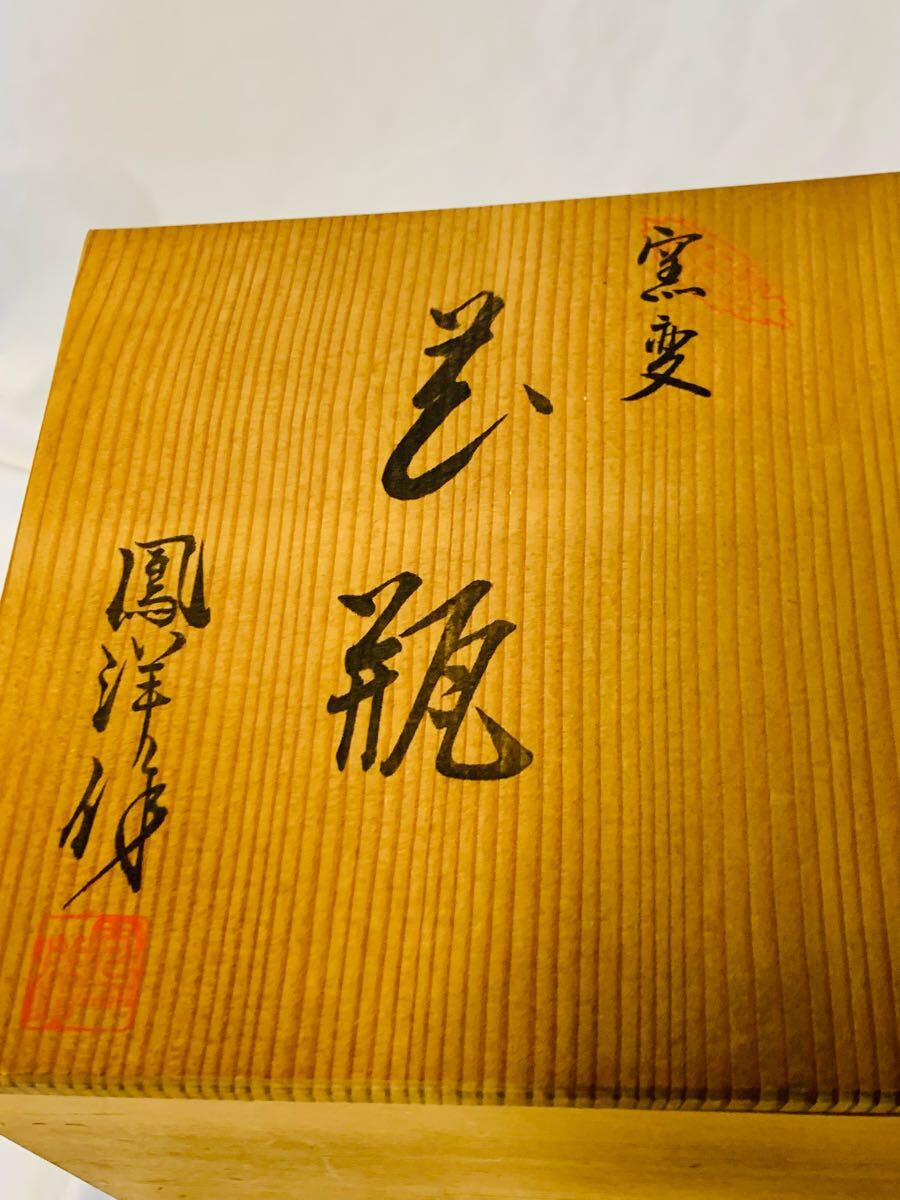 窯変
花瓶
鳳洋作